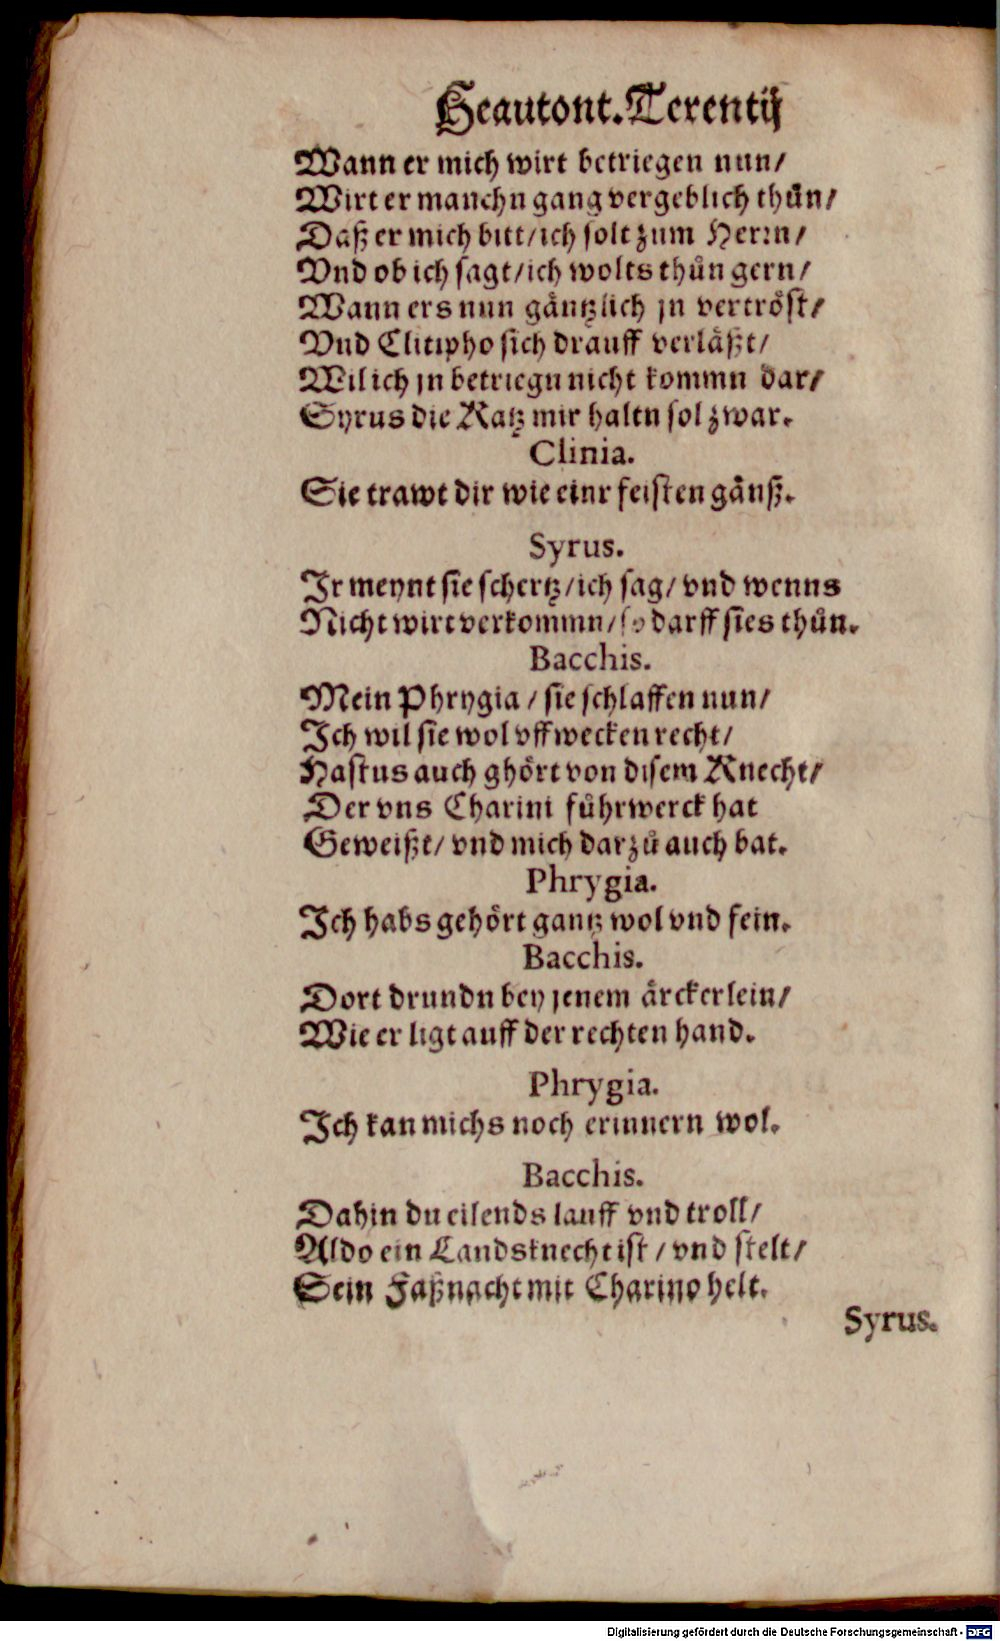 Heautont. Terentij
Wann er mich wirt betriegen nun/
Wirt er manchn gang vergeblich thůn/
Daß er mich bitt/ich solt zum Herrn/
Vnd ob ich sagt/ich wolts thůn gern/
Wann ers nun gäntzlich jn vertröst/
Vnd Clitipho sich drauff verläßt/
Wil ich jn betriegn nicht kommn dar/
Syrus die Katz mir haltn sol zwar.
Clinia.
Sie trawt dir wie einr feisten gänß.
Syrus.
Jr meynt sie schertz/ich sag/vnd wenns
Nicht wirt verkommn/so darff sies thůn.
Bacchis.
Mein Phrygia/sie schlaffen nun/
Jch wil sie wol vffwecken recht/
Hastus auch ghört von disem Knecht/
Der vns Charini fůhrwerck hat
Geweißt/vnd mich darzů auch bat.
Phrygia.
Jch habs gehört gantz wol vnd fein.
Bacchis.
Dort drundn bey jenem ärckerlein/
Wie er ligt auff der rechten hand.
Phrygia.
Jch kan michs noch erinnern wol.
Bacchis.
Dahin du eilends lauff vnd troll/
Aldo ein Landsknecht ist/vnd stelt/
Sein Faßnacht mit Charino helt.
Syrus.
Digitalisierung gefördert durch die Deutsche Forschungsgemeinschaft - DFG